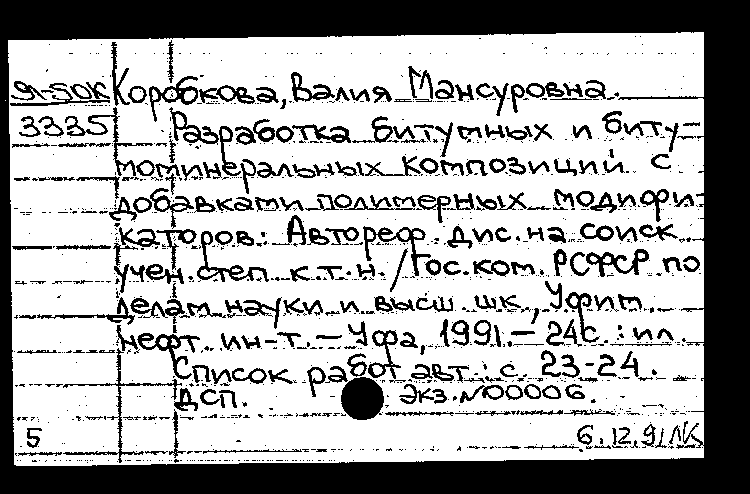 91-50К Коробкова, Валия Мансуровна.
3335 Разработка битумных и биту-
моминеральных композиций с
добавками полимерных модифи-
каторов: Автореф. дис. на соиск
учен. степ к.т.н. / Гос. ком. РСФСР по
делам науки и высш шк, Уфим.
нефт. ин-т. — Уфа, 1991. — 24с. : ил.
Список работ авт.: с. 23-24.
ДСП. Экз. №00006.
5 6.12.91 ЛК